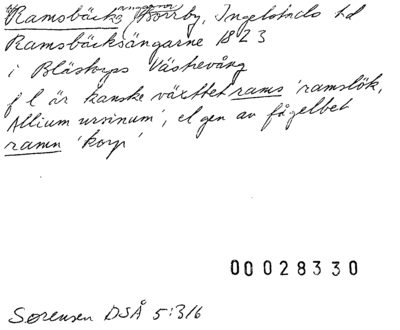 Ramsbäcksängarne, Borrby, Ingelstads hd
Ramsbäcksängarne 1823
i Bläskorps Västrevång
f l är kanske växtbet rams 'ramslök,
Allium ursinum', el gen av fågelbet
ramn 'korp'
00 028330
Sørensen DSÅ 5:316